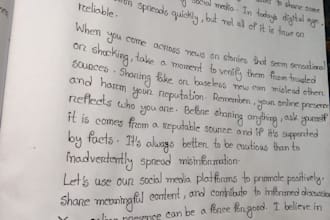 social media. In today's digital age,
spreads quickly, but not all of it is true or
reliable.
When you come across news on stories that seem sensational
on shocking, take a moment to verify them from trusted
sources. Sharing fake on baseless new can mislead others
and harm your reputation. Remember, your online presence
reflects who you are. Before sharing anything, ask yourself
it is comes from a reputable source and if it's supported
by facts. It's always better to be cautious than to
inadvertently spread misinformation.
Let's use our social media platforms to promote positively,
share meaningful content, and contribute to informed discussion
presence can be a force for good. I believe in